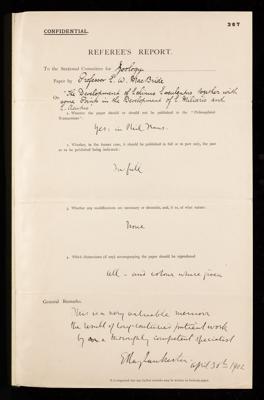 367
CONFIDENTIAL.
REFEREE'S REPORT.
To the Sectional Committee for Zoology
Paper by Professor E. W. MacBride
On "The Development of Echinus Esculentus together with
some Points in the Development of E. Miliaris and
E. Acutus"
1. Whether the paper should or should not be published in the "Philosophical
Transactions".
Yes: in Phil. Trans.
2. Whether, in the former case, it should be published in full or in part only, the part
or to be published being indicated:
In full
3. Whether any modifications are necessary or desirable, and, if so, of what nature:
None
4. Which illustrations (if any) accompanying the paper should be reproduced
All - and colour where given
General Remarks.
This is a very valuable memoir
the result of long-continued patient work
by a thoroughly competent specialist
E Ray Lankester. April 30th 1902